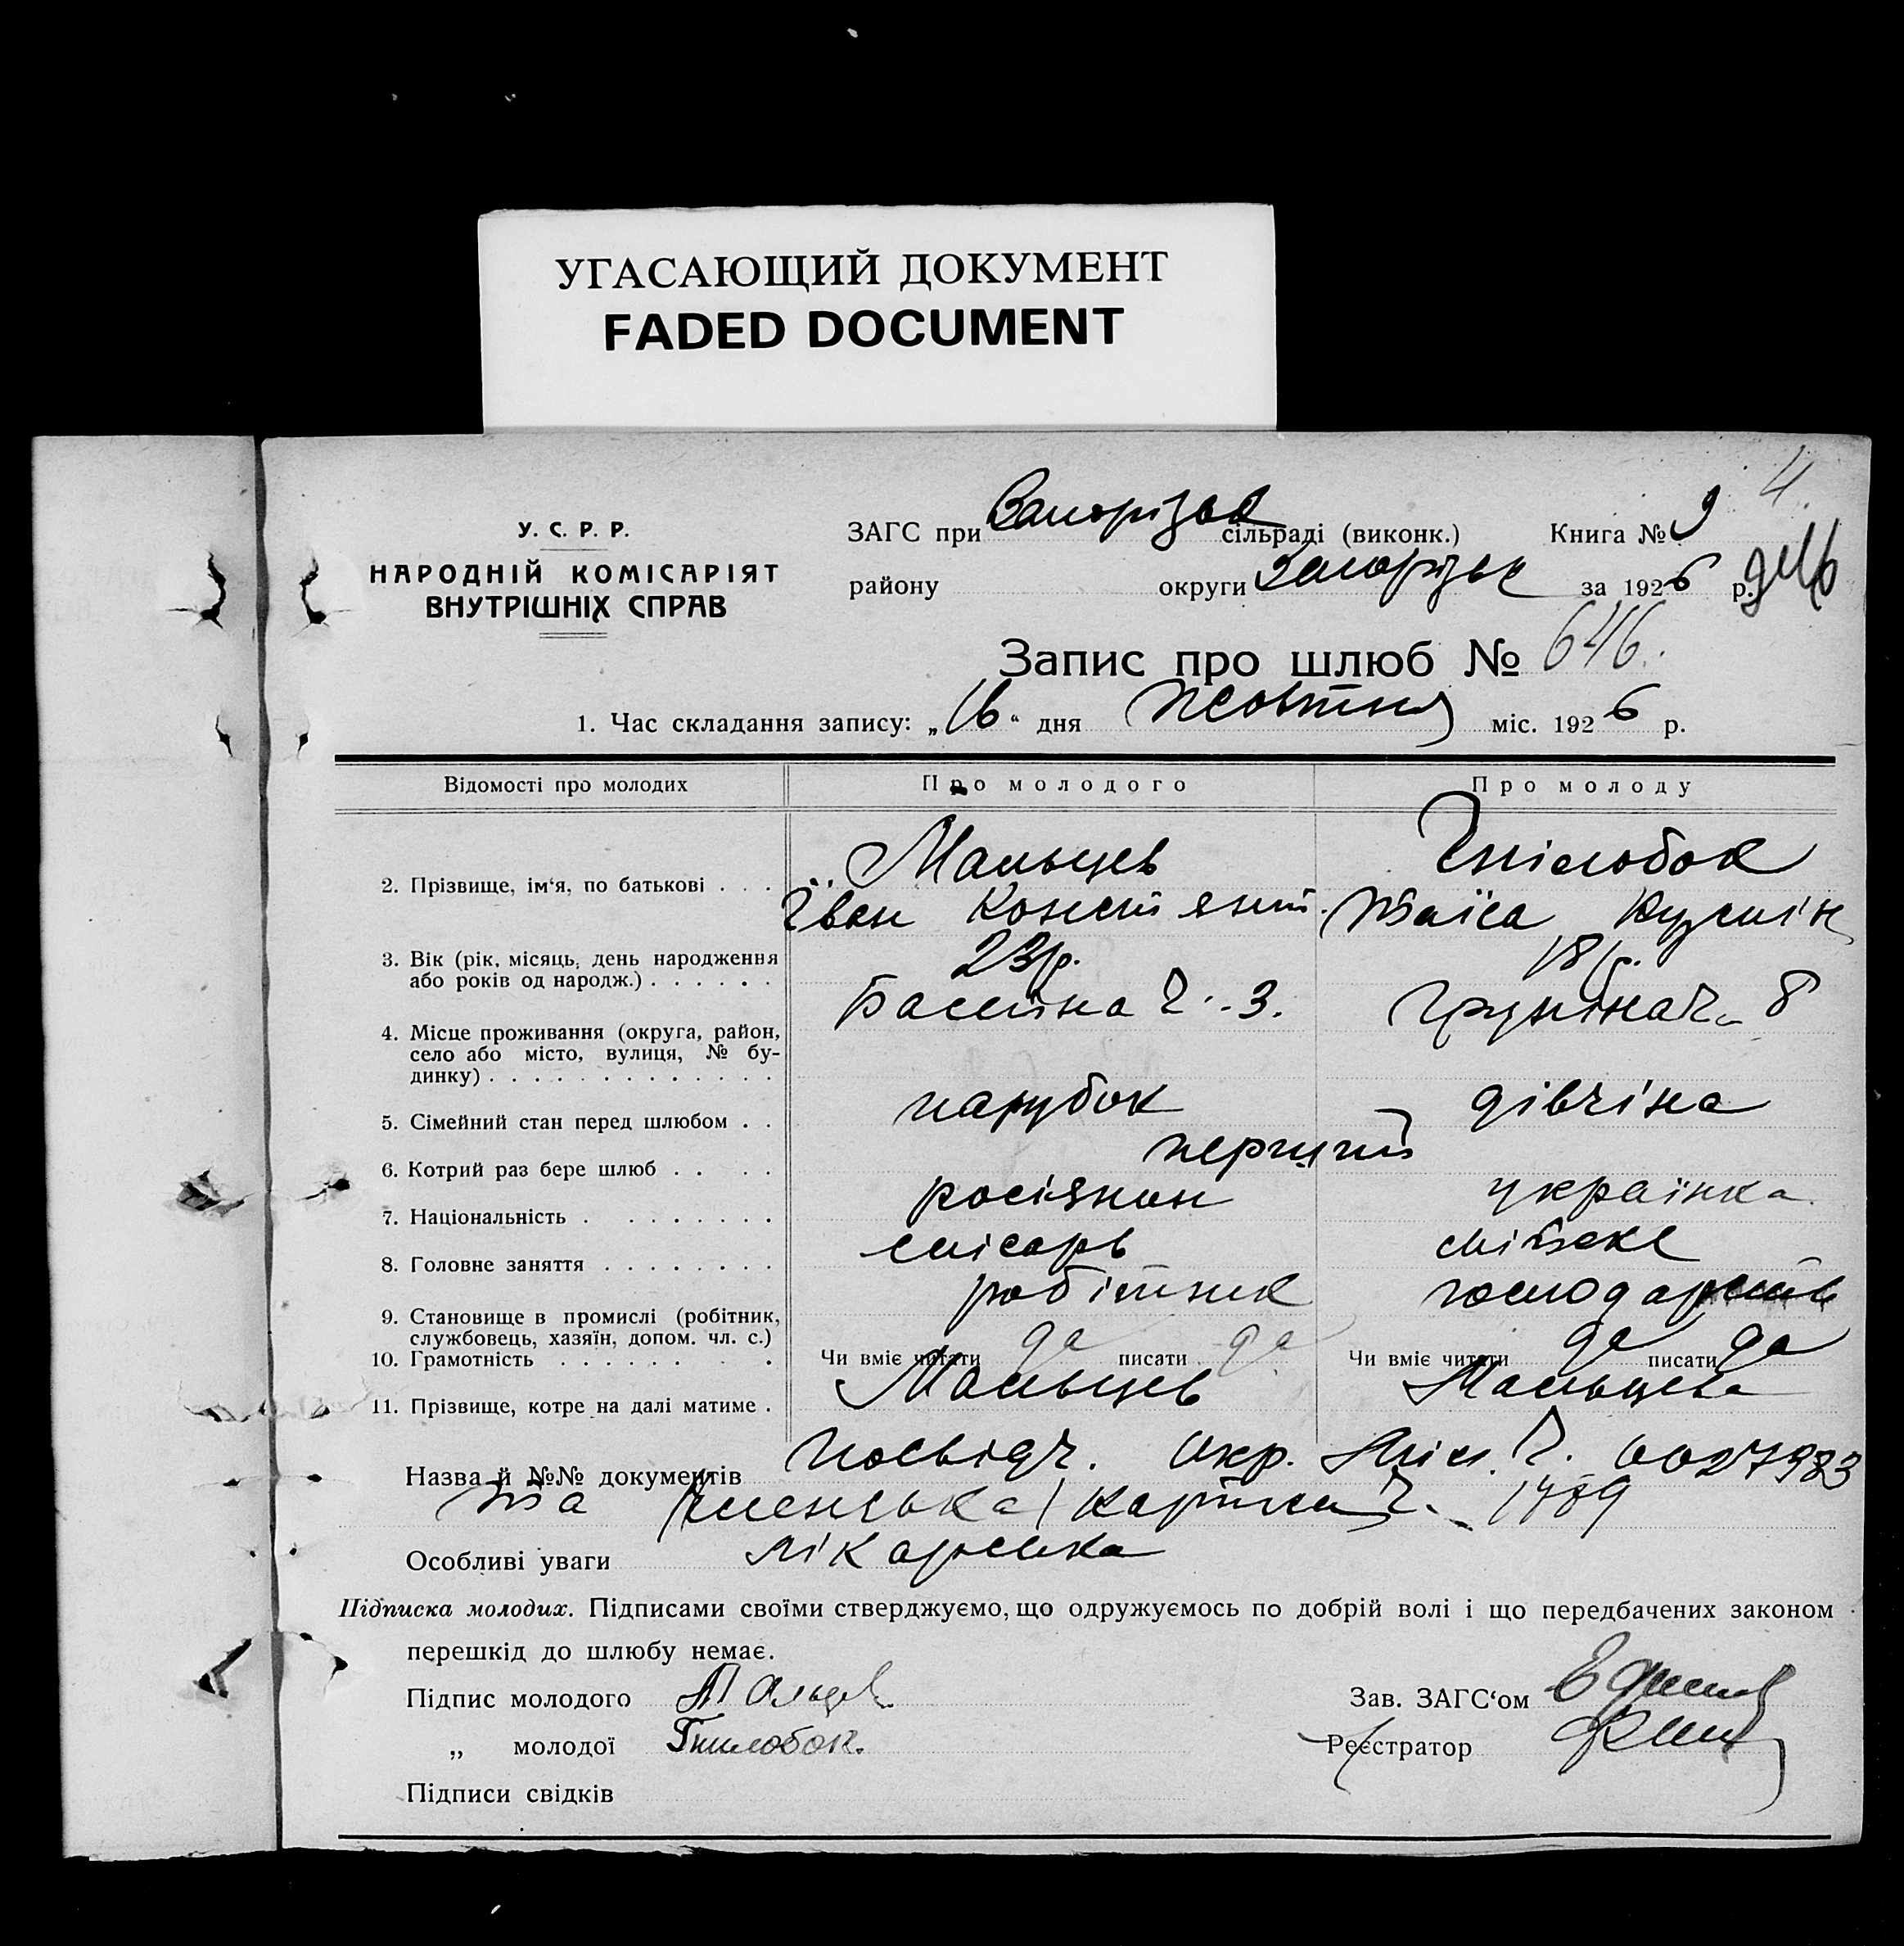 УГАСАЮЩИЙ ДОКУМЕНТ
FADED DOCUMENT
4
У. С. Р. Р.
НАРОДНІЙ КОМІСАРІЯТ
ВНУТРІШНІХ СПРАВ
ЗАГС при Запорізьк сільраді (виконк.) Книга № 9
району округи Запорізьк за 1926 р.
Запис про шлюб № 646.
1. Час складання запису: „16“ дня Жовтня міс. 1926 р.
Відомості про молодих Про молодого Про молоду
2. Прізвище, ім‘я, по батькові . . . Мальцев Гнілобок
Іван Констянт. Таїса Кузмін
3. Вік (рік, місяць, день народження
або років од народж.) . . . . . . 23р. 18 р.
4. Місце проживання (округа, район,
село або місто, вулиця, № бу-
динку) . . . . . . . . . . . . . Басейна ч. 3. ч. 8
5. Сімейний стан перед шлюбом . . парубок дівчіна
6. Котрий раз бере шлюб . . . . перший
7. Національність . . . . . . . . росіянин українка
8. Головне заняття . . . . . . . . слісарь мійське
9. Становище в промислі (робітник,
службовець, хазяїн, допом. чл. с.) робітник господарств
10. Грамотність . . . . . . . Чи вміє читати да писати да Чи вміє читати да писати да
11. Прізвище, котре на далі матиме . Мальцев Мальцева
Назва й №№ документів посвідч. Окр. Міл. ч. 0027983
та членська картка ч. 1789
Особливі уваги лікарська
Підписка молодих. Підписами своїми стверджуємо, що одружуємось по добрій волі і що передбачених законом
перешкід до шлюбу немає.
Підпис молодого Мальцев Зав. ЗАГС‘ом
„ молодої Гнилобок. Реєстратор
Підписи свідків